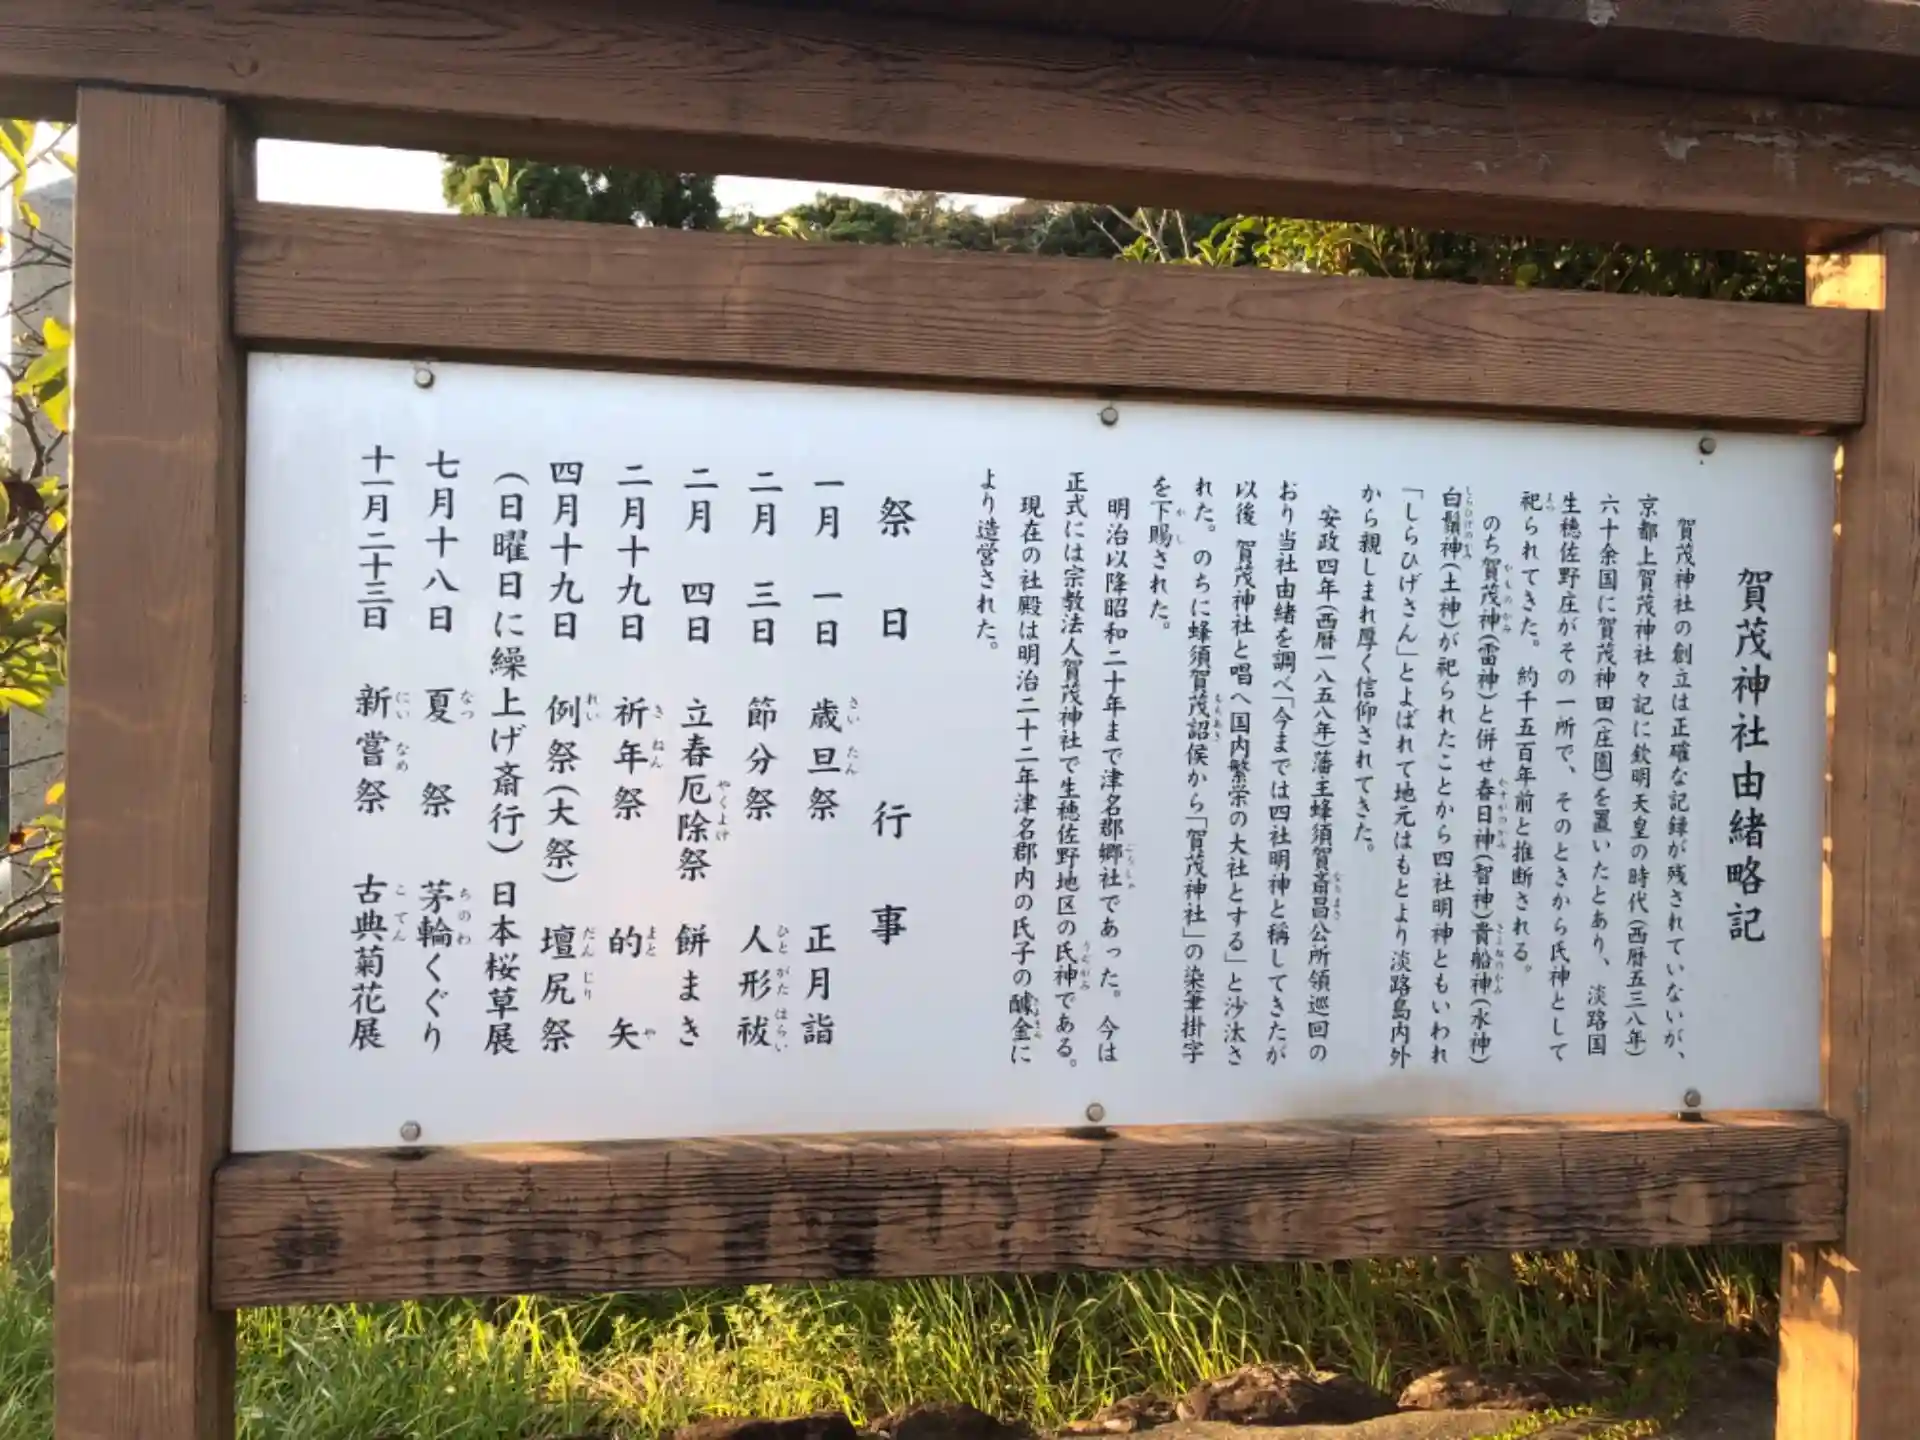 賀茂神社由緒略記
賀茂神社の創立は正確な記録が残されていないが、
京都上賀茂神社々記に欽明天皇の時代(西暦五三八年)
六十余国に賀茂神田(庄園)を置いたとあり、淡路国
生穂佐野庄がその一所で、そのときから氏神として
祀られてきた。約千五百年前と推断される。
のち賀茂神(雷神)と併せ春日神(智神)貴船神(水神)
白鬚神(土神)が祀られたことから四社明神ともいわれ
「しらひげさん」とよばれて地元はもとより淡路島内外
から親しまれ厚く信仰されてきた。
安政四年(西暦一八五八年)藩主蜂須賀斎昌公所領巡回の
おり当社由緒を調べ「今までは四社明神と称してきたが
以後 賀茂神社と唱へ国内繁栄の大社とする」と沙汰さ
れた。のちに蜂須賀茂韶侯から「賀茂神社」の染筆掛字
を下賜された。
明治以降昭和二十年まで津名郡郷社であった。今は
正式には宗教法人賀茂神社で生穂佐野地区の氏神である。
現在の社殿は明治二十二年津名郡内の氏子の醵金に
より造営された。
祭日 行事
一月 一日 歳旦祭 正月詣
二月 三日 節分祭 人形祓
二月 四日 立春厄除祭 餅まき
二月十九日 祈年祭 的矢
四月十九日 例祭(大祭) 壇尻祭
(日曜日に繰上げ斎行) 日本桜草展
七月十八日 夏祭 茅輪くぐり
十一月二十三日 新嘗祭 古典菊花展